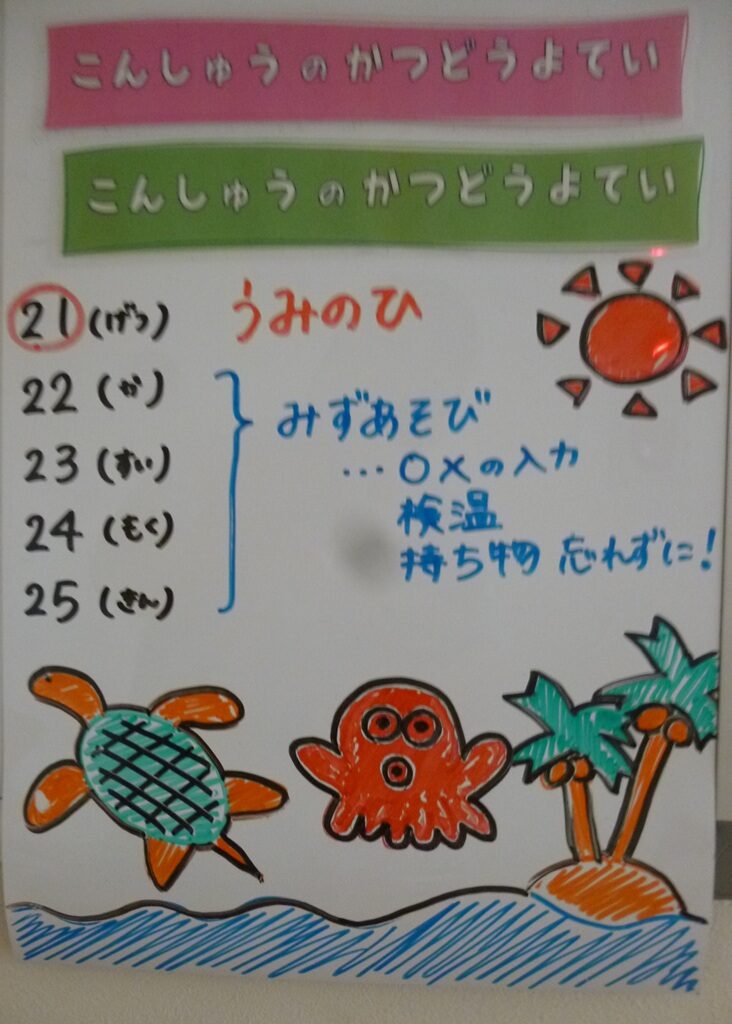 こんしゅうのかつどうよてい
こんしゅうのかつどうよてい
21(げつ) うみのひ
22(か)
23(すい)
24(もく)
25(きん)
みずあそび
…○×の入力
検温
持ち物 忘れずに!